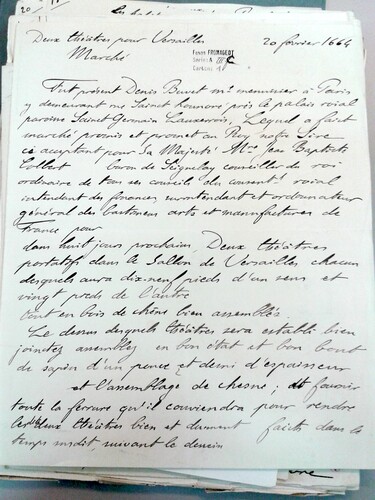 Deux théâtres pour Versailles 20 février 1664
Marché
Fonds FROMAGEOT
Fut présent Denis Buret mᵉ menuisier à Paris
y demeurant rue Saint honoré près le palais roial
paroisse Saint Germain Lauxerois, Lequel a fait
marché promis et promet au Roy notre Sire
ce acceptant pour Sa Majesté Mʳᵉ Jean Baptiste
Colbert baron de Seignelay conseiller du roi
ordinaire de tous ses conseils du roial
intendant des finances surintendant et ordonnateur
général des bastimens arts et manufactures de
France pour
dans huit jours prochains, Deux théâtres
portatifs dans le Sallon de Versailles chacun
desquels aura dix-neuf pieds d'un sens et
vingt pieds de l'autre
tout en bois de chêne bien assemblés.
Le dessus desquels théâtres sera establi bien
joinctez assemblez en bon état et bon bout
de sapin d'un pouce et demi d'espaisseur
et l'assemblage de chesne ; fournir
toute la ferrure qu'il conviendra pour rendre
deux théâtres bien et dument faicts dans le
temps susdit, suivant le dessein